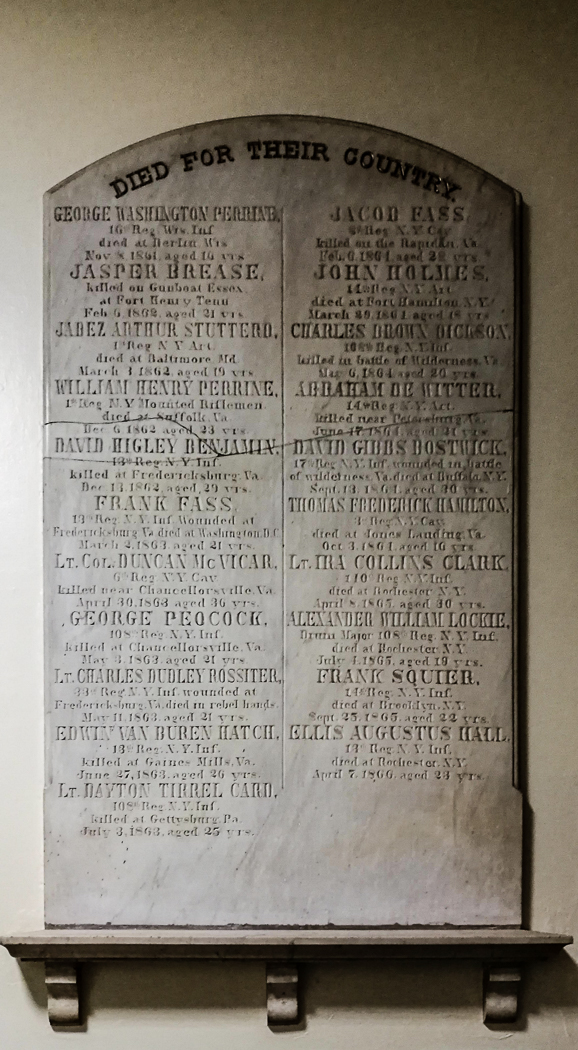 DIED FOR THEIR COUNTRY.
GEORGE WASHINGTON PERRINE,
16th Reg. Wis. Inf.
died at Berlin, Wis.
Nov. 8, 1861, aged 16 yrs.
JASPER BREASE,
killed on Gunboat Essex,
at Fort Henry Tenn
Feb 6, 1862, aged 21 yrs.
JABEZ ARTHUR STUTTERD,
1st Reg N Y Art.
died at Baltimore, Md.
March 4, 1862, aged 19 yrs.
WILLIAM HENRY PERRINE,
1st Reg. N.Y. Mounted Riflemen.
died at Suffolk, Va.
Dec 6 1862, aged 23 yrs.
DAVID HIGLEY BENJAMIN,
13th Reg. N.Y. Inf.
killed at Fredericksburg, Va.
Dec 13, 1862, aged, 29 yrs.
FRANK FASS,
13th Reg. N.Y. Inf. Wounded at
Fredericksburg, Va. died at Washington, D.C.
March 2, 1863, aged 21 yrs.
LT. COL. DUNCAN McVICAR,
6th Reg. N.Y. Cav.
killed near Chancellorsville, Va.
April 30, 1863 aged 36 yrs.
GEORGE PEOCOCK,
108th Reg. N.Y. Inf.
killed at Chancellorsville, Va.
May 3, 1863, aged 21 yrs.
LT. CHARLES DUDLEY ROSSITER,
33d Reg. N.Y. Inf. wounded at
Fredericksburg, Va, died in rebel hands,
May 11, 1863, aged 21 yrs.
EDWIN VAN BUREN HATCH,
13th Reg. N.Y. Inf.
killed at Gaines Mills, Va.
June 27, 1863, aged 26 yrs.
LT. DAYTON TIRREL CARD,
108th Reg. N.Y. Inf.
killed at Gettysburg, Pa.
July 3, 1863, aged 25 yrs.
JACOB FASS,
8th Reg. N.Y. Cav
killed on the Rapidan, Va.
Feb. 6, 1864, aged yrs.
JOHN HOLMES,
14th Reg. N.Y. Art.
died at Fort Hamilton, N.Y.
March 20, 1864, aged 18 yrs.
CHARLES BROWN DICKSON,
108th Reg. N.Y. Inf.
killed in battle of Wilderness, Va.
May 6, 1864, aged 20 yrs.
ABRAHAM DE WITTER,
14th Reg. N.Y. Art.
killed near Petersburg, Va.
June 17, 1864, aged 21 yrs.
DAVID GIBBS BOSTWICK,
17th Reg. N.Y. Inf. wounded in battle
of wilderness Va. died at Buffalo, N.Y.
Sept. 13, 1864, aged 30 yrs.
THOMAS FREDERICK HAMILTON,
3d Reg. N.Y. Cav.
died at Jones Landing, Va.
Oct. 3, 1864, aged 16 yrs.
LT. IRA COLLINS CLARK,
140th Reg. N.Y. Inf.
died at Rochester N.Y.
April 8, 1865, aged 30 yrs.
ALEXANDER WILLIAM LOCKIE,
Drum Major 108th Reg. N.Y. Inf.
died at Rochester N.Y.
July 4, 1865, aged 19 yrs.
FRANK SQUIER,
14th Reg. N.Y. Inf.
died at Brooklyn, N.Y.
Sept. 25, 1865, aged 22 yrs.
ELLIS AUGUSTUS HALL,
13th Reg. N.Y. Inf.
died at Rochester, N.Y.
April 7, 1866, aged 23 yrs.